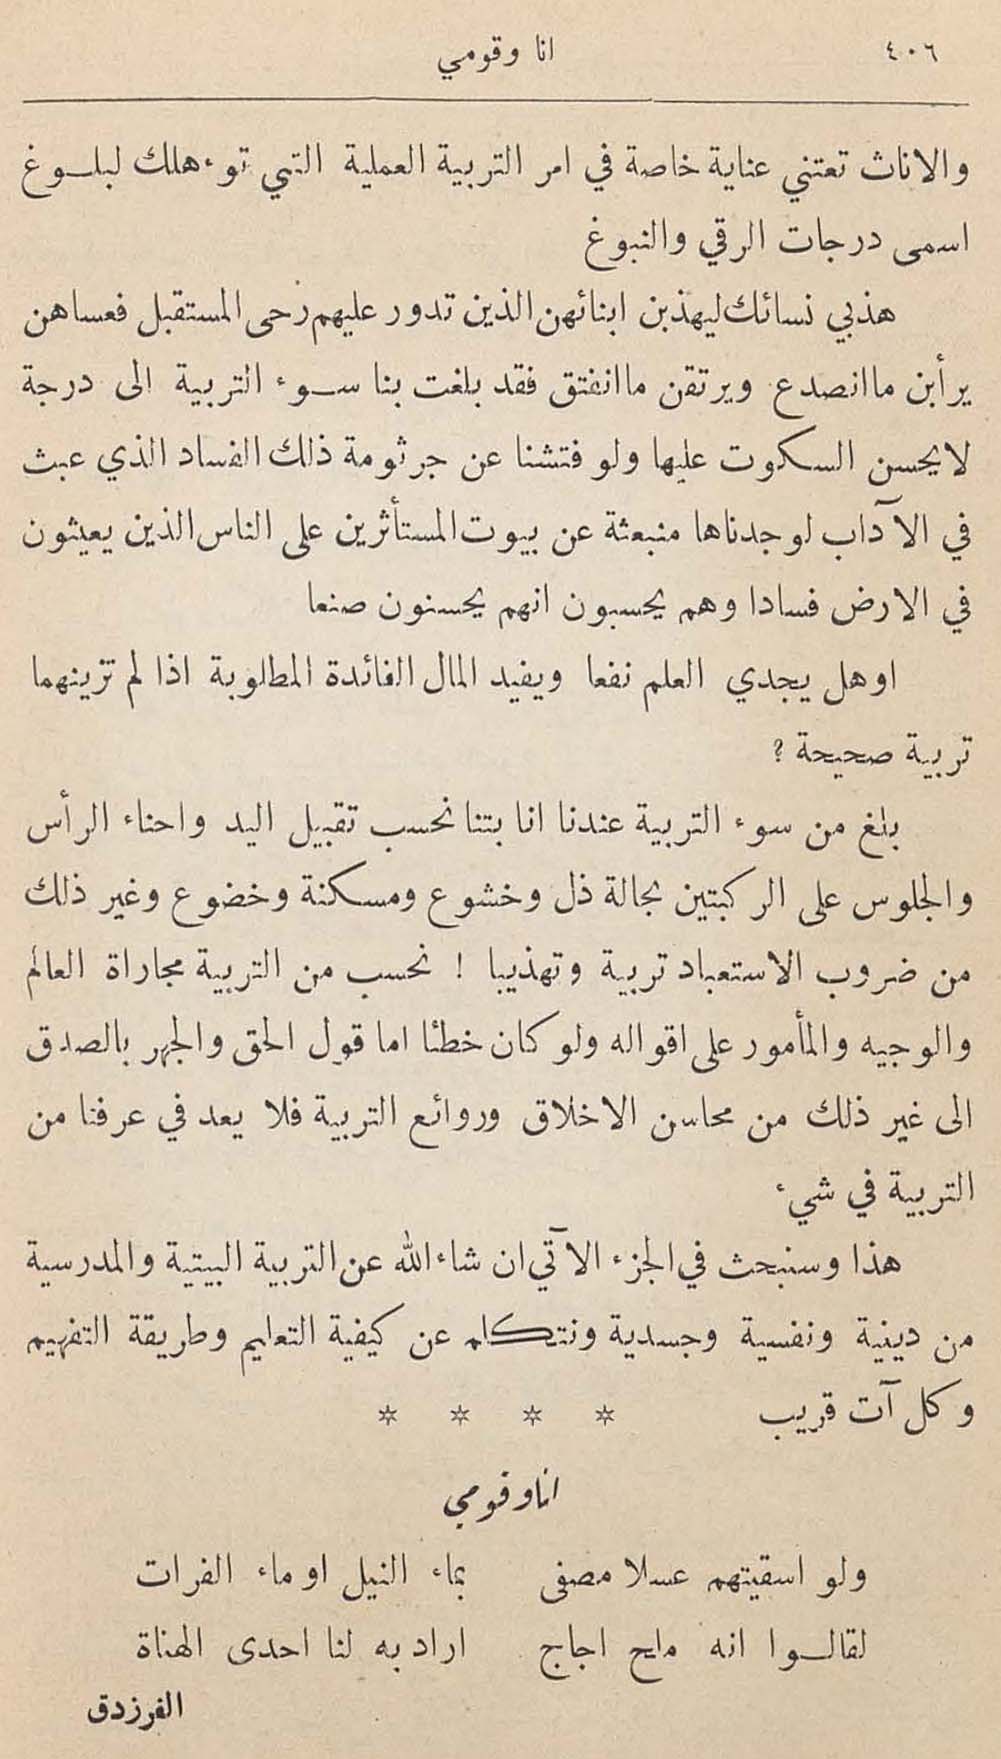 ٤٠٦
انا وقومي
والاناث تعتني عناية خاصة في امر التربية العملية التي توءهلك لبلوغ
اسمى درجات الرقي والنبوغ
هذبي نسائك ليهذبن ابنائهن الذين تدور عليهم رحى المستقبل فعساهن
يرأبن ما انصدع ويرتقن ما انفتق فقد بلغت بنا سوء التربية الى درجة
لايحسن السكوت عليها ولو فتشنا عن جرثومة ذلك الفساد الذي عبث
في الآداب لوجدناها منبعثة عن بيوت المستأثرين على الناس الذين يعيثون
في الارض فسادا وهم يحسبون انهم يحسنون صنعا
اوهل يجدي العلم نفعا ويفيد المال الفائدة المطلوبة اذا لم تزينهما
تربية صحيحة ؟
بلغ من سوء التربية عندنا انا بتنا نحسب تقبيل اليد واحناء الرأس
والجلوس على الركبتين بحالة ذل وخشوع ومسكنة وخضوع وغير ذلك
من ضروب الاستعباد تربية وتهذيبا ! نحسب من التربية مجاراة العالم
والوجيه والمأمور على اقواله ولو كان خطئا اما قول الحق والجهر بالصدق
الى غير ذلك من محاسن الاخلاق وروائع التربية فلا يعد في عرفنا من
التربية في شيء
هذا وسنبحث في الجزء الآتي ان شاء الله عن التربية البيتية والمدرسية
من دينية ونفسية وجسدية ونتكلم عن كيفية التعليم وطريقة التفهيم
وكل آت قريب * * * *
انا وقومي
ولو اسقيتهم عسلا مصفى بماء النيل او ماء الفرات
لقالوا انه ملح اجاج اراد به لنا احدى الهناة
الفرزدق